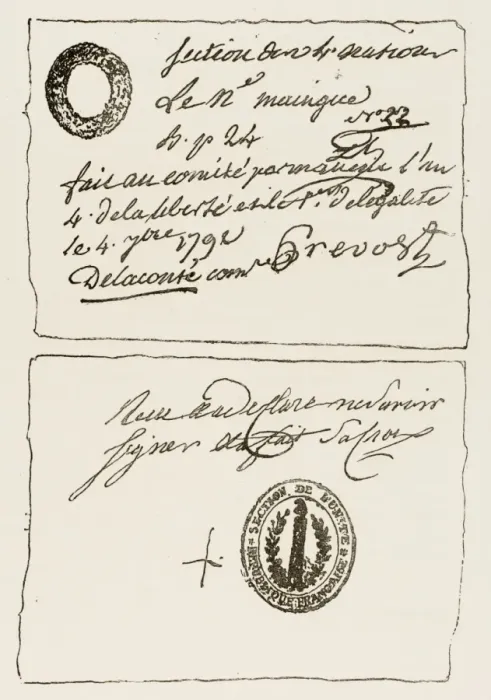 Section des 4 nations
Le Né maingue
N° 22
B. p 24
fait au comité permanent l'an
4. de la liberté et le 1er. de legalite
le 4. 7bre 1792
Delaconté comre Prevost
declare ne savoir
signer et a fait sa croix
SECTION DE L'UNITÉ
RÉPUBLIQUE FRANÇAISE